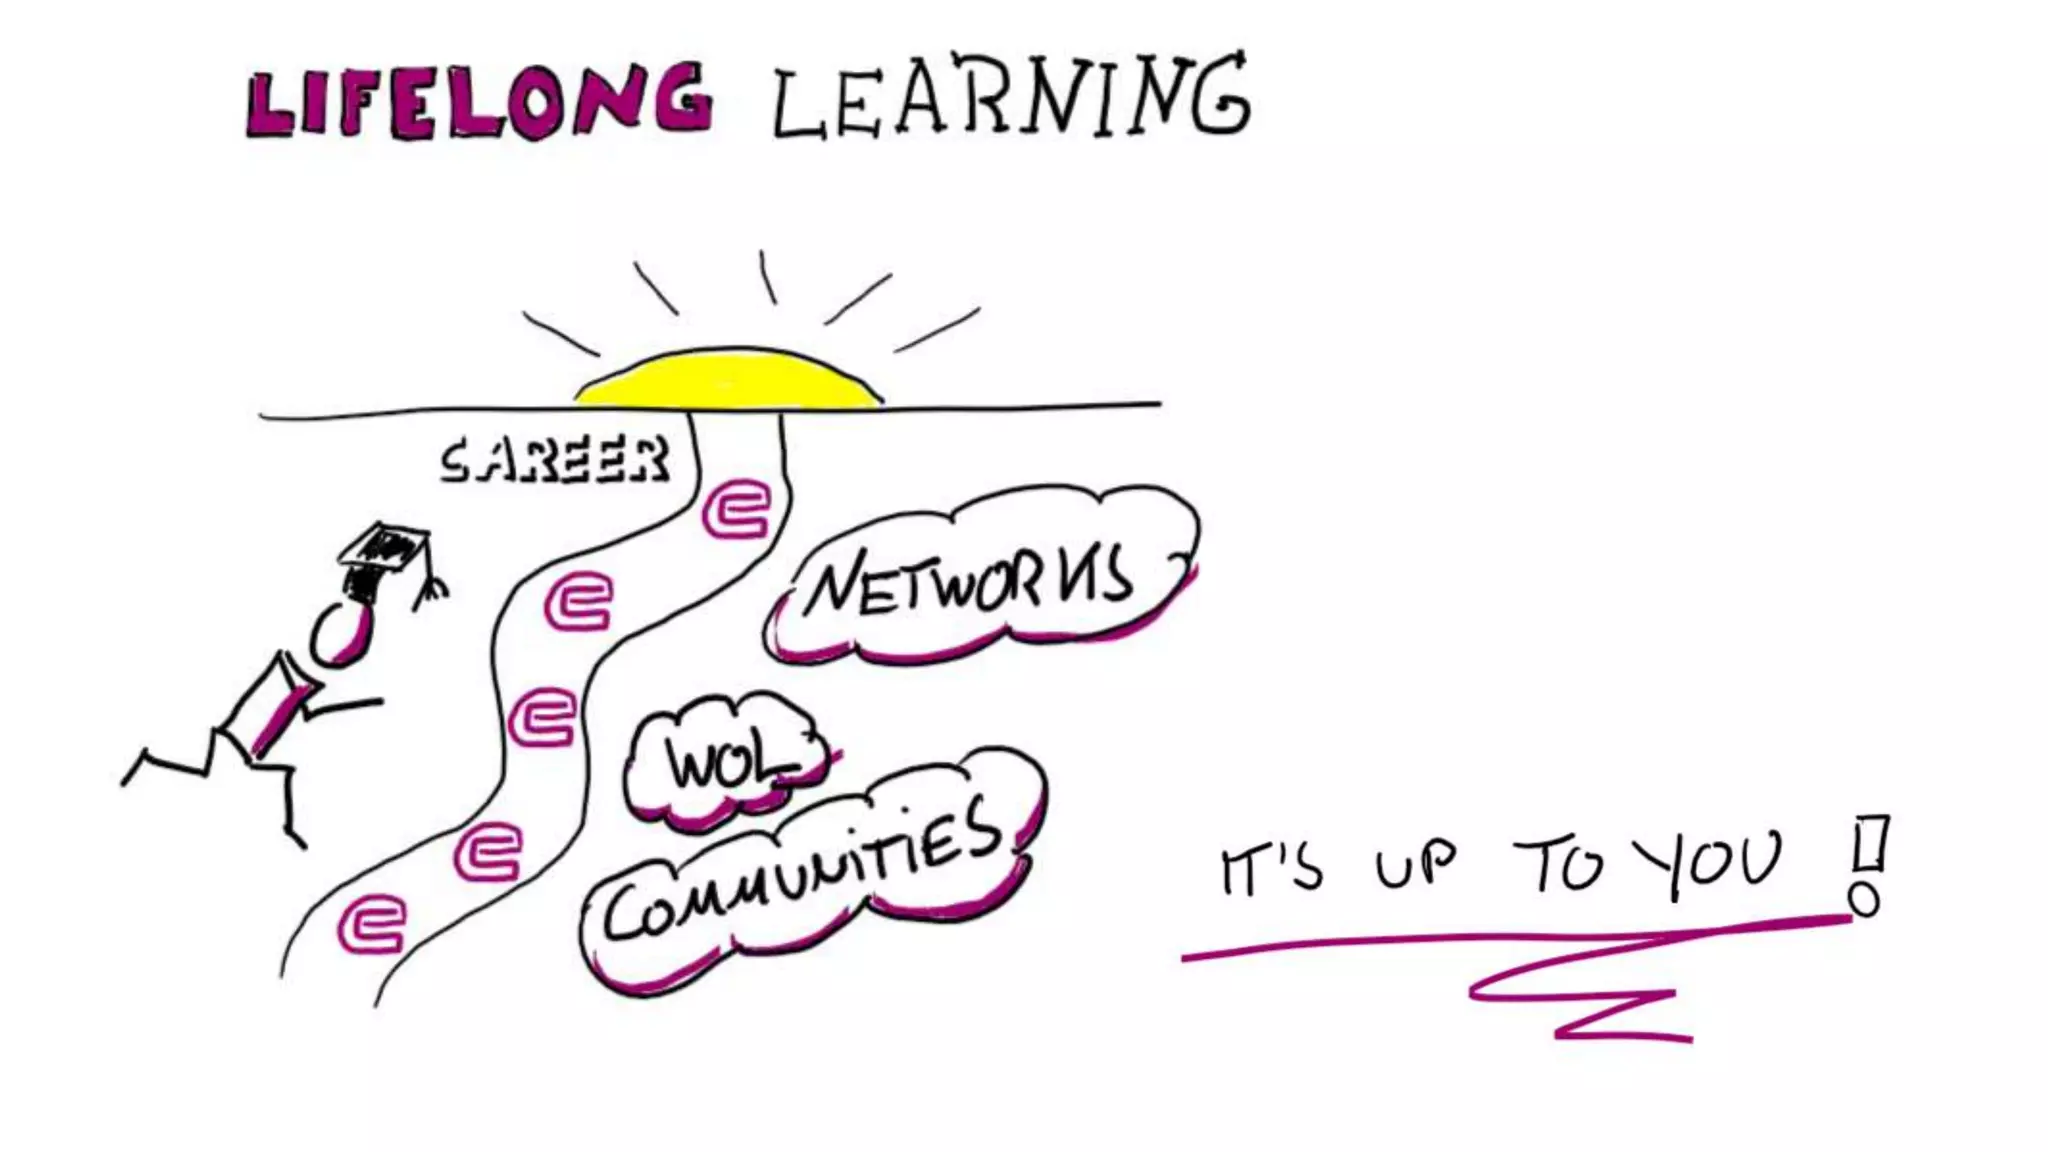 LIFELONG LEARNING
CAREER
e
NETWORKS
e
e
WOL
e
COMMUNITIES
e
IT'S UP TO YOU!